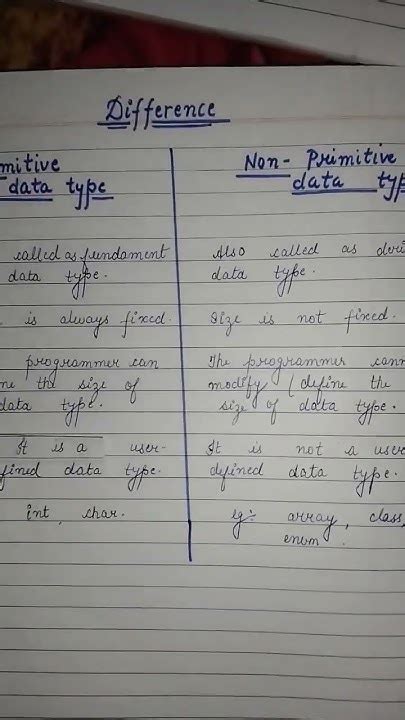 Difference
mitive
data type
called as fundament
data type.
is always fixed.
programmer can
ne the size of
data type.
It is a user-
fined data type.
int, char.
Non- Primitive
data typ
Also called as deri
data type.
Size is not fixed.
The programmer cann
modify (define the
size of data type.
It is not a user
defined data type.
eg:- array, class,
enum.